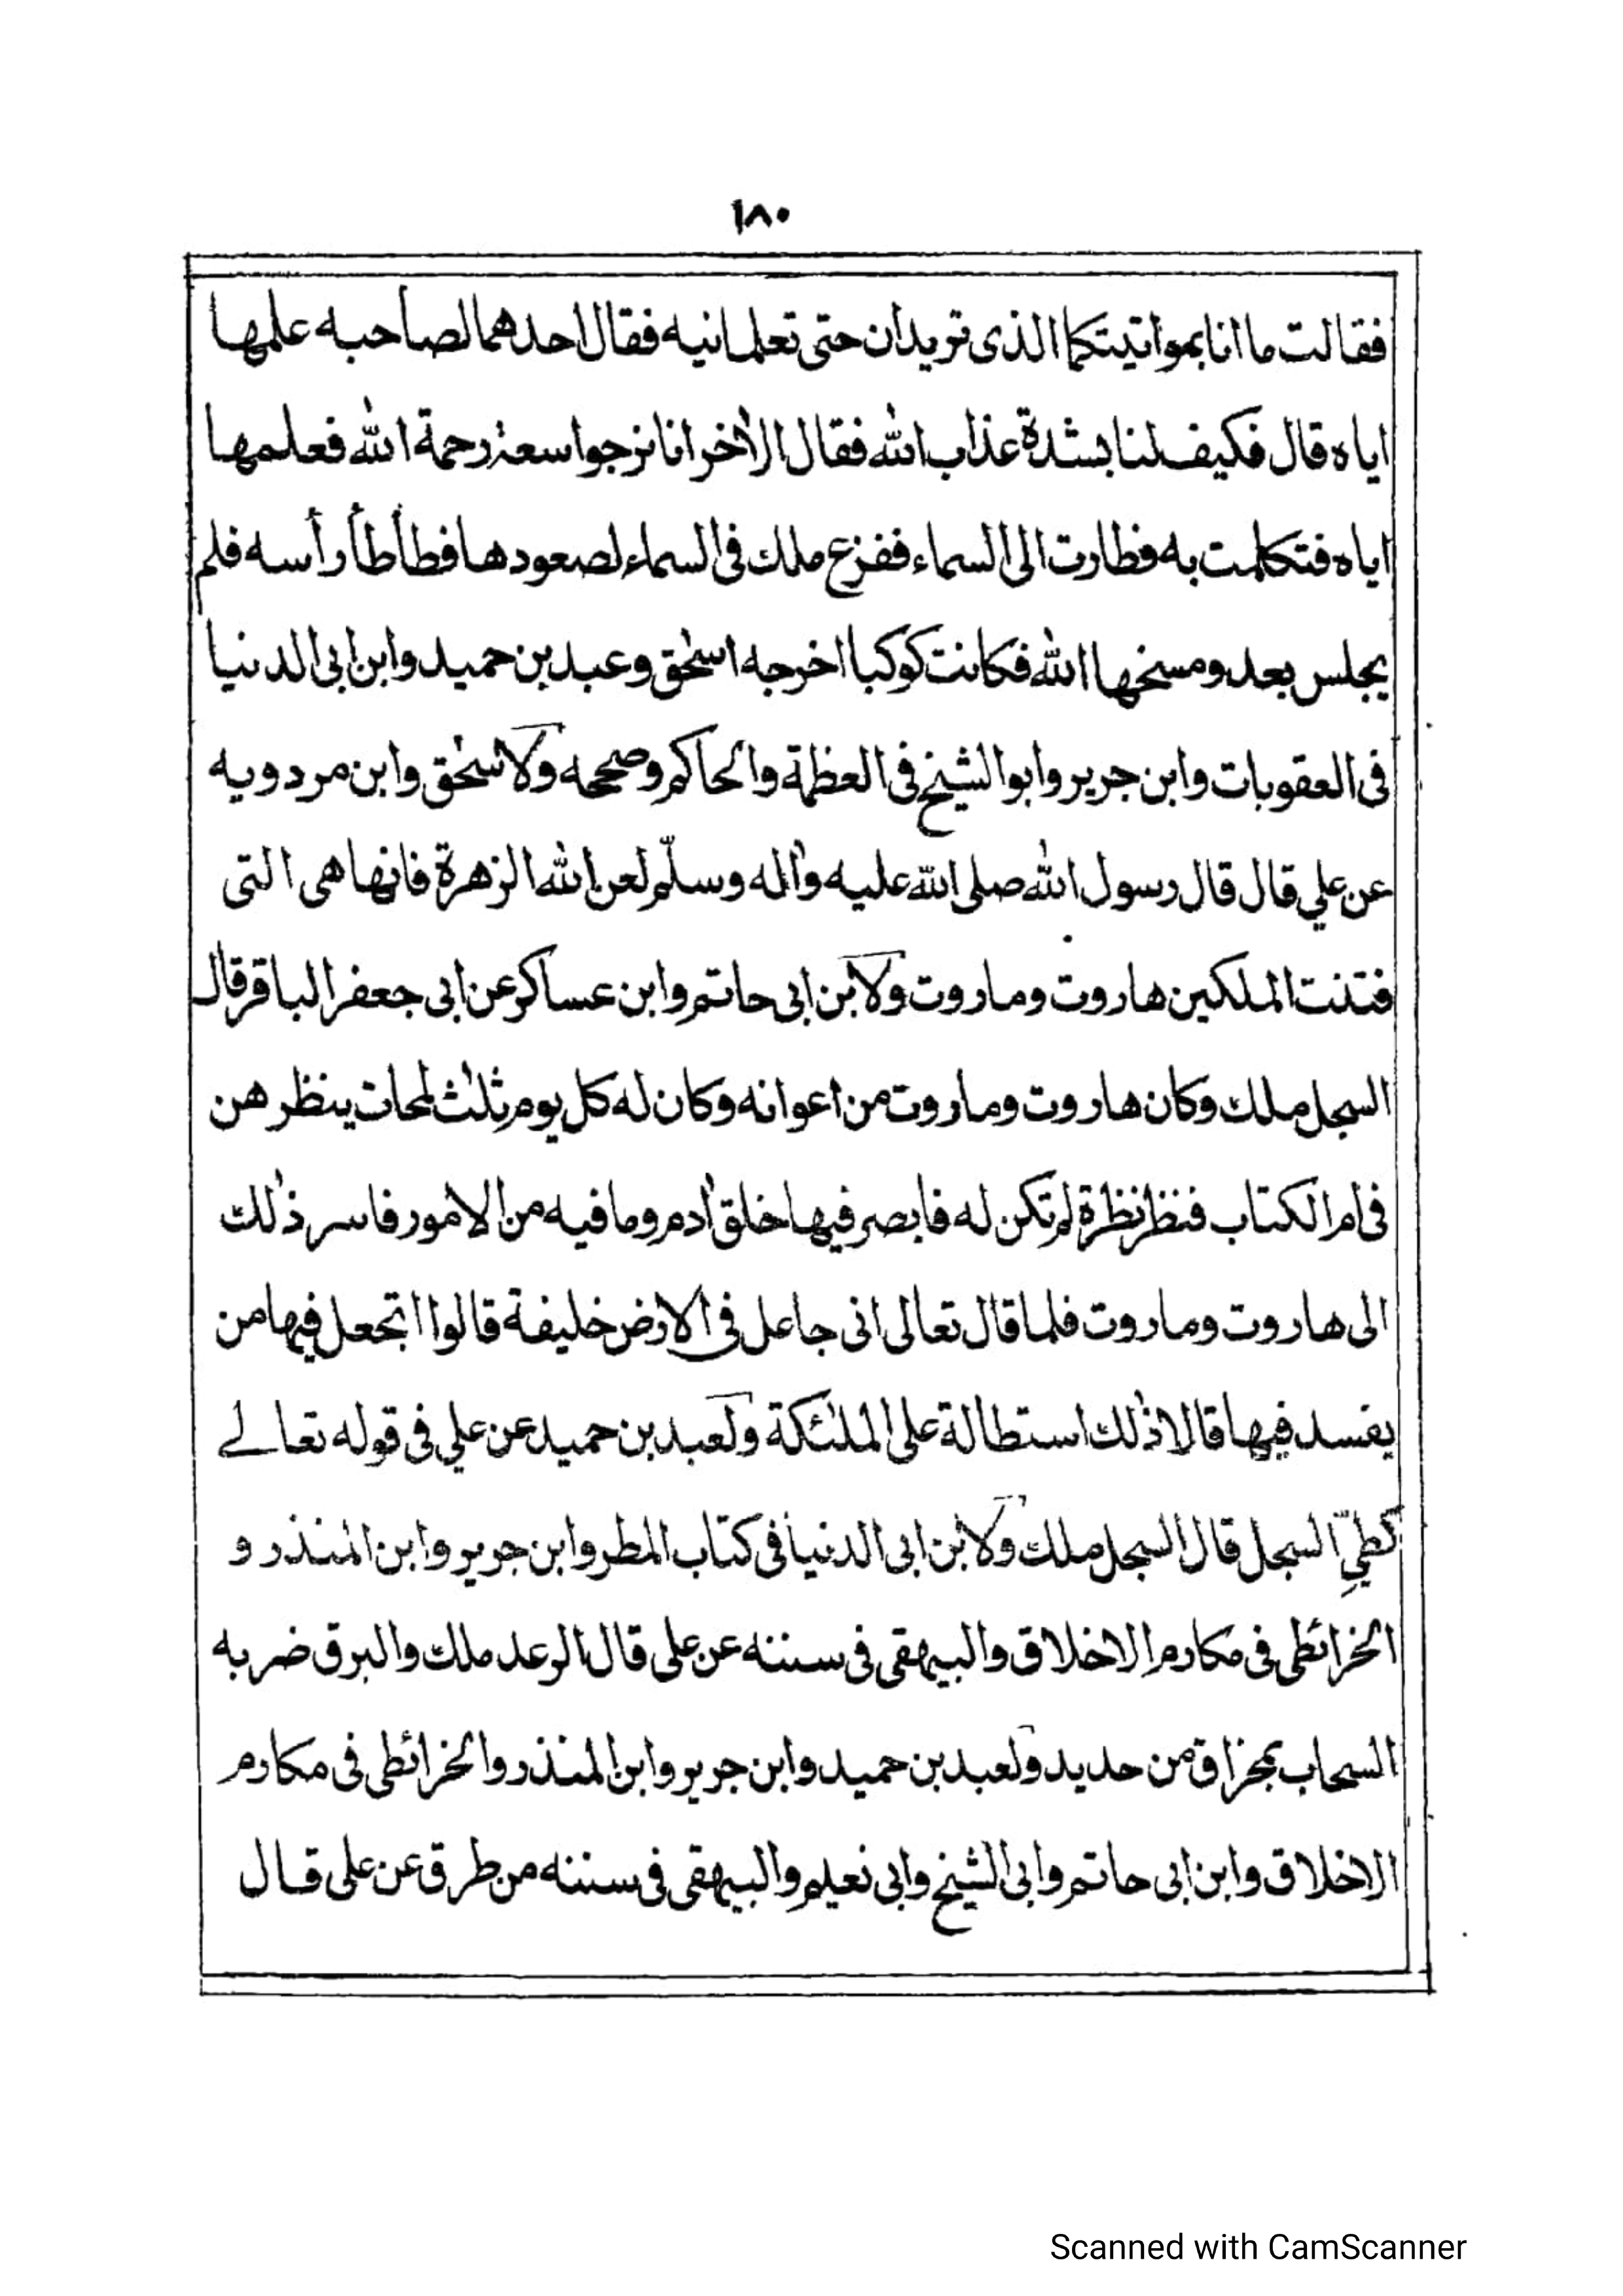 ١٨٠
فقالت ما انا بمواتيتكما الذى تريدان حتى تعلمانيه فقال احدهما لصاحبه علمها
اياه قال فكيف لنا بشدة عذاب الله فقال الاٰخر انا نرجوا سعة رحمة الله فعلمها
اياه فتكلمت به فطارت الى السماء ففزع ملك فى السماء لصعودها فطأطأ رأسه فلم
يجلس بعد ومسخها الله فكانت كوكبا اخرجه اسحٰق وعبد بن حميد وابن ابى الدنيا
فى العقوبات وابن جرير وابو الشيخ فى العظمة والحاكم وصححه ولاسحٰق وابن مردويه
عن علي قال قال رسول الله صلى الله عليه واٰله وسلّم لعن الله الزهرة فانها هى التى
فتنت الملكين هاروت وماروت ولابن ابى حاتم وابن عساكر عن ابى جعفر الباقر قال
السجل ملك وكان هاروت وماروت من اعوانه وكان له كل يوم ثلٰث لمحات ينظرهن
فى ام الكتاب فنظر نظرة لم تكن له فابصر فيها خلق اٰدم وما فيه من الامور فاسر ذٰلك
الى هاروت وماروت فلما قال تعالى انى جاعل فى الارض خليفة قالوا اتجعل فيها من
يفسد فيها قالا ذٰلك استطالة على الملٰئكة ولعبد بن حميد عن علي فى قوله تعالے
كطيِّ السجل قال السجل ملك ولابن ابى الدنيا فى كتاب المطر وابن جرير وابن المنذر و
الخرائطى فى مكارم الاخلاق والبيهقى فى سننه عن على قال الرعد ملك والبرق ضربه
السحاب بمخراق من حديد ولعبد بن حميد وابن جرير وابن المنذر والخرائطى فى مكارم
الاخلاق وابن ابى حاتم وابى الشيخ وابى نعيم والبيهقى فى سننه من طرق عن على قال
Scanned with CamScanner